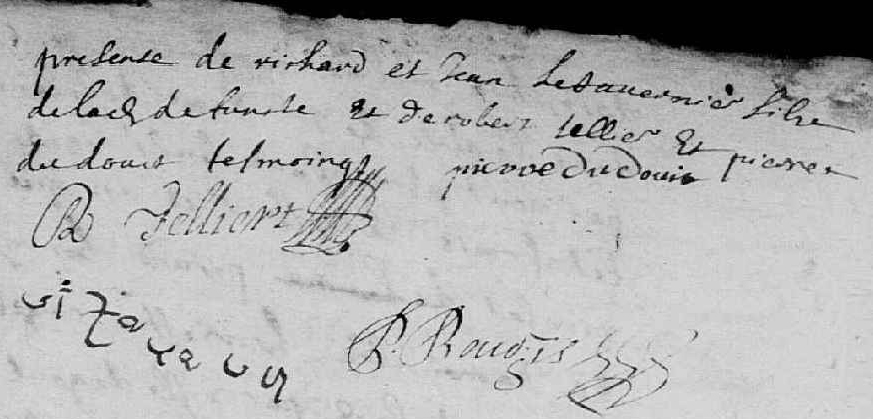 presense de richard et Jean Letavernier filse
de lad defunste et de robert tellier et pierre
du douit tesmoings pierre du Douit
R Telliert
P. Rougis